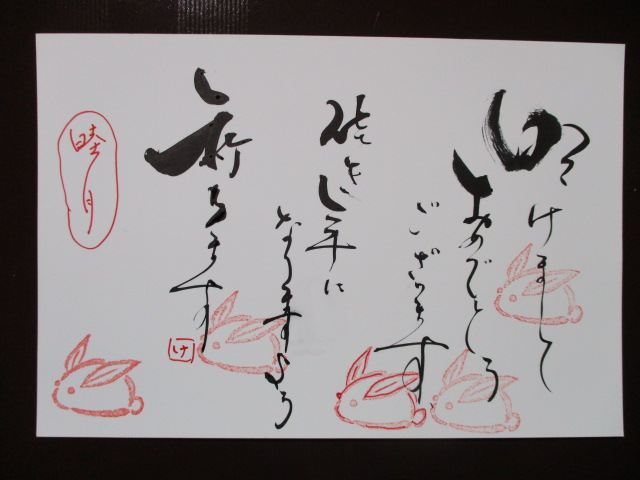 明けまして
おめでとう
ございます
佳き年に
なりますよう
祈ります
け
睦月